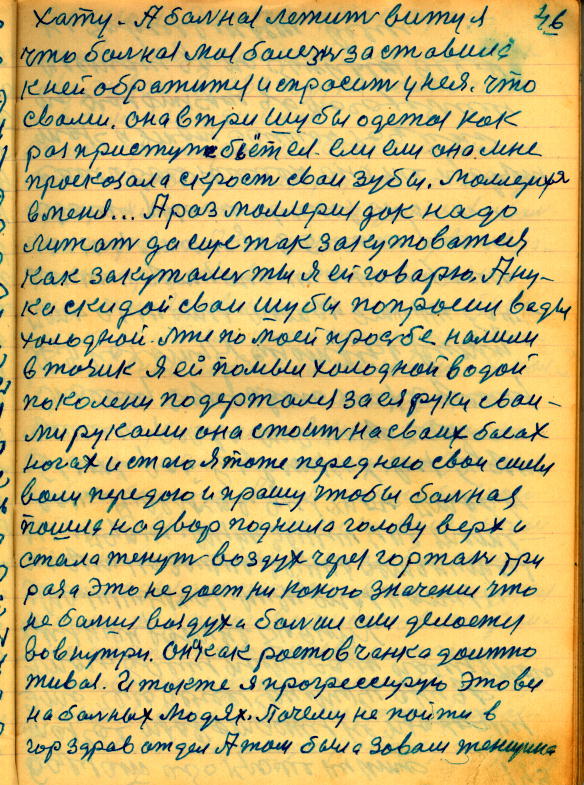 хату. А больная лежит витуя 46
что больная моя болезн заставила
к ней обратитця и спросит у нея. что
свами. она втри шубы одетая как
раз приступом бьётся. ели ели она мне
проскозала скрост сваи зубы. моллерия
вменя... А раз моллерия дак надо
лижать да еще так закутоватся
как закуталеч ты я ей говарю. А ну-
ка скидой сваи шубы попроси вады
холодной. мне помоей прозбе налили
вточик я ей помыл холодной водой
по колени подержался за ея руки сваи-
ми руками она стоит насваих босах
ногах и стаю я тоже переднею сваи силы
воли передою и прашу чтобы больная
пошла надвор поднила голову верх и
стала тенут воздух через гортан три
раза это не дает ни какого значении что
не болии воздуха болии сил делоется
вовнутри. Он как ростовчанка должно
жива. И также я прогрессирую этови
на больных людях. Почему не пойти в
горздрав отдел А там была зовам женщина